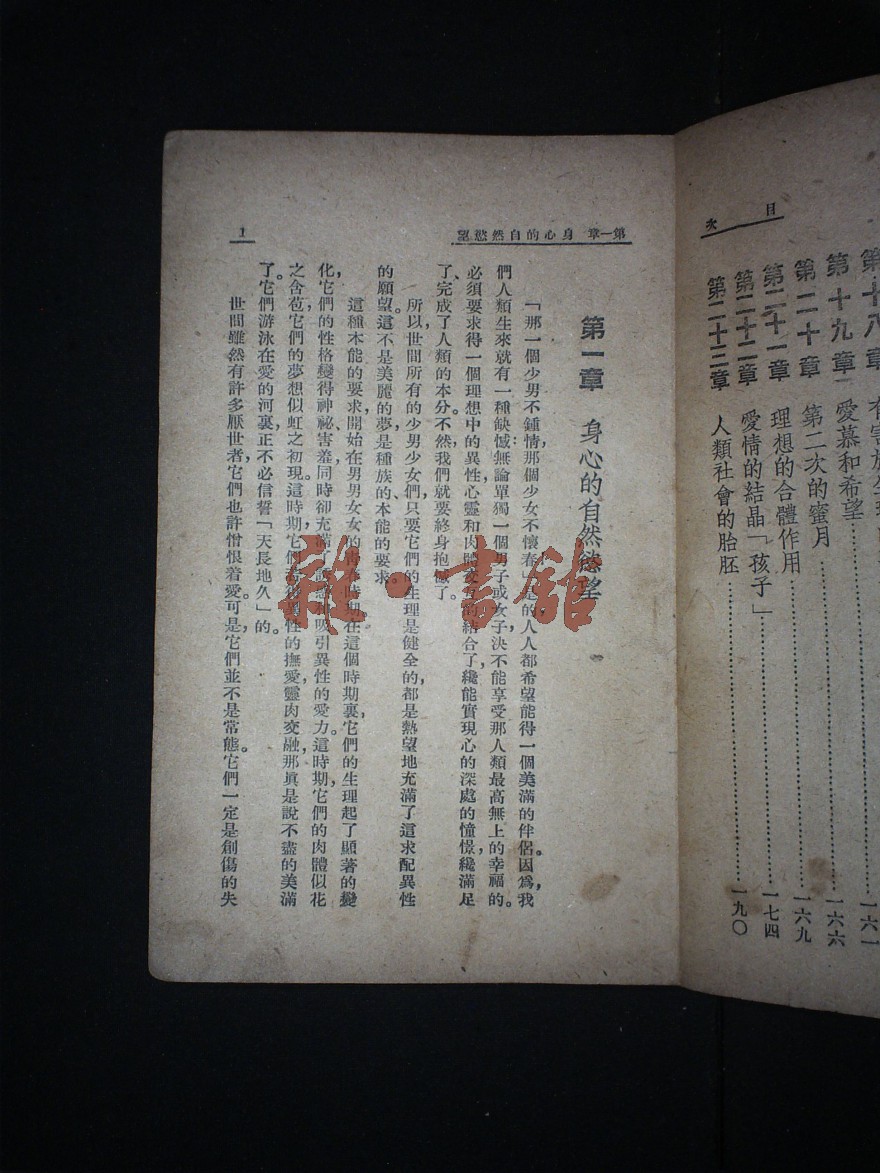 目次
第十八章
一六一
第十九章 愛慕和希望 一六六
第二十章 第二次的蜜月 一六九
第二十一章 理想的合體作用 一七四
第二十二章 愛情的結晶「孩子」
第二十三章 人類社會的胎胚 一九〇
第一章 身心的自然慾望
1
第一章 身心的自然慾望
「那一個少男不鍾情,那個少女不懷春」是的,人人都希望能得一個美滿的伴侶。因爲,我
們人類生來就有一種缺憾:無論單獨一個男子或女子,決不能享受那人類最高無上的幸福的。
必須要求得一個理想中的異性,心靈和肉體交互的結合了,纔能實現心的深處的憧憬,纔滿足
了、完成了人類的本分。不然,我們就要終身抱憾了。
所以,世間所有的少男少女們,只要它們的生理是健全的,都是熱望地充滿了這求配異性
的願望。這不是美麗的夢,是種族的本能的要求。
這種本能的要求,開始在男男女女的青春時期。在這個時期裏,它們的生理起了顯著的變
化,它們的性格變得神祕害羞,同時卻充滿了誘惑和吸引異性的愛力。這時期,它們的肉體似花
之含苞,它們的夢想似虹之初現。這時期,它們若得異性的撫愛,靈肉交融,那眞是說不盡的美滿
了。它們游泳在愛的河裏,正不必信誓「天長地久」的。
世間雖然有許多厭世者,它們也許憎恨着愛。可是,它們並不是常態。它們一定是創傷的失
雜·書館